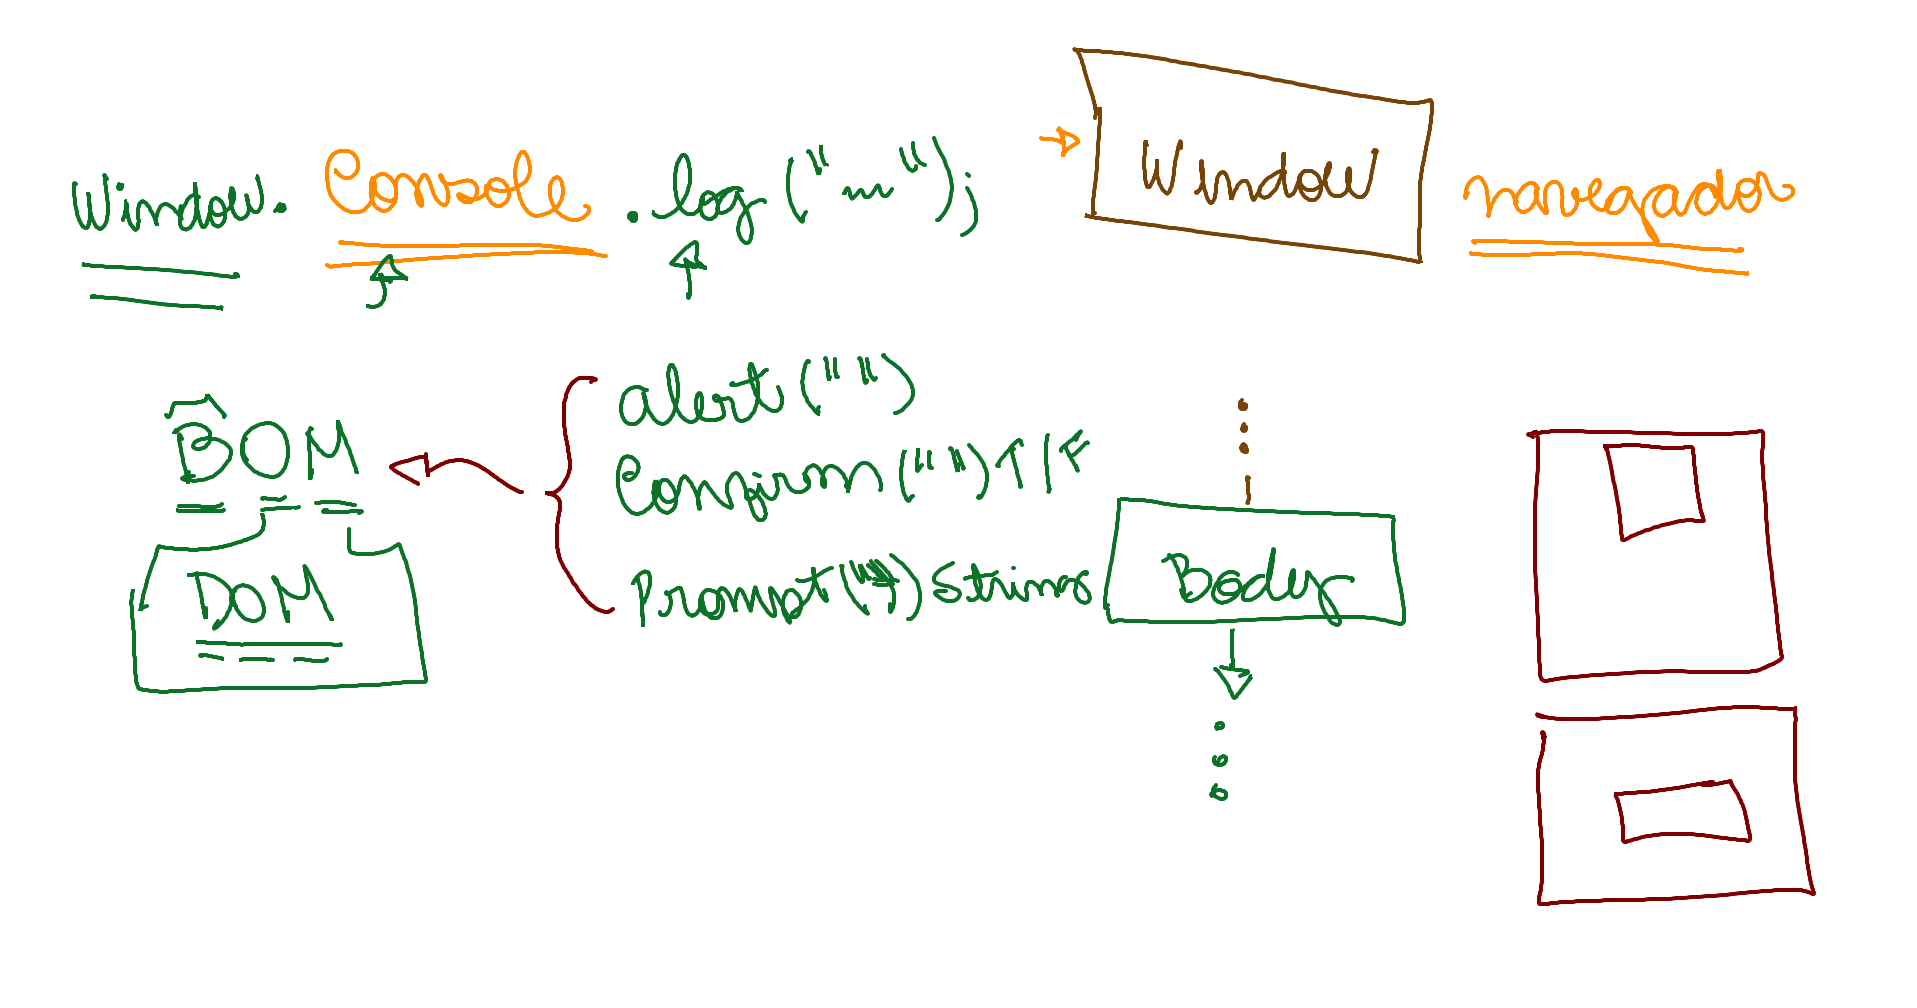 Window. Console .log("~");
Window
navegador
BOM
alert("")
Confirm("") T/F
Prompt("") String
DOM
Body